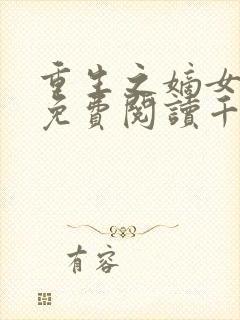 重生之嫡女
免费閱讀千
有容